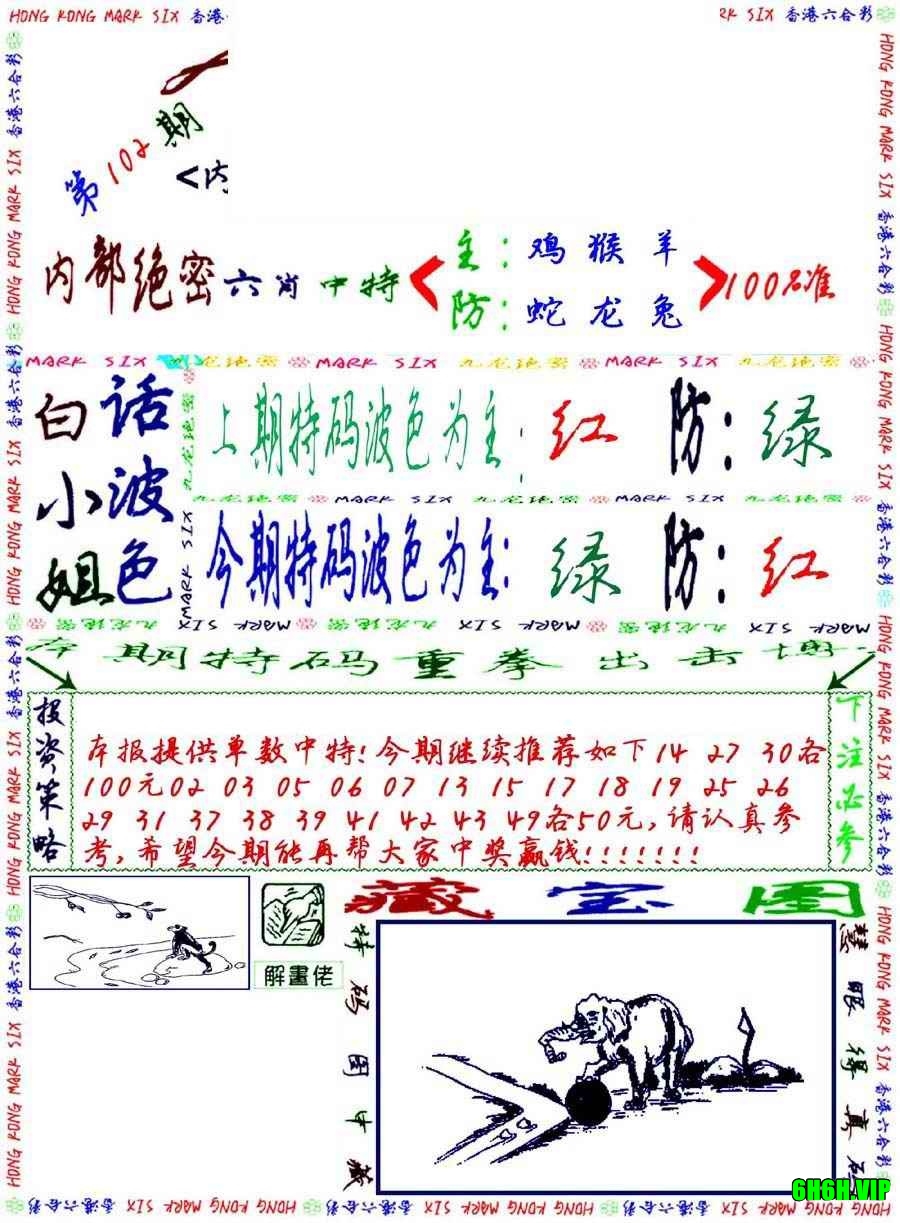 HONG KONG MARK SIX 香港
RK SIX 香港六合彩
第102期
<内
内部绝密六肖中特
主：鸡猴羊
防：蛇龙兔
100%准
MARK SIX 九龙绝密 MARK SIX 九龙绝密 MARK SIX 九龙绝密
白话
小波
姐色
上期特码波色为主：红 防：绿
九龙绝密 MARK SIX 九龙绝密 MARK SIX
今期特码波色为主：绿 防：红
MARK SIX 九龙绝密 MARK SIX 九龙绝密 MARK SIX 九龙绝密
本期特码重拳出击
投资策略
本报提供单数中特!今期继续推荐如下14 27 30各
100元02 03 05 06 07 13 15 17 18 19 25 26
29 31 37 38 39 41 42 43 49各50元,请认真参
考,希望今期能再帮大家中奖赢钱!!!!!!!
下注必参
藏宝图
解畫佬
特码图中藏
慧眼得真
HONG KONG MARK SIX 香港六合彩
6H6H.VIP